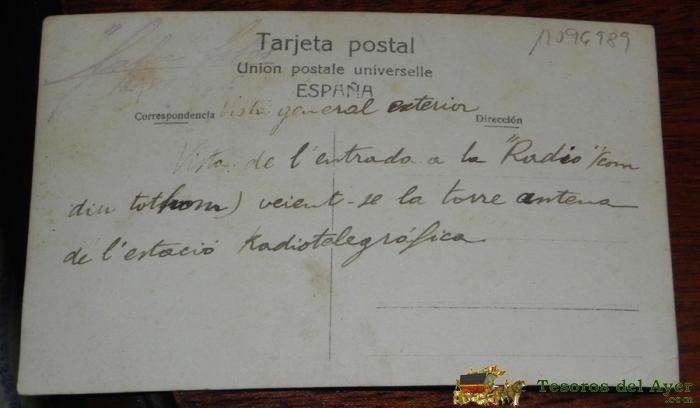 A096989
Tarjeta postal
Unión postale universelle
ESPAÑA
Correspondencia
Dirección
Vista general exterior
Vista de l'entrada a la "Radio" (com
diu tothom) veient-se la torre antena
de l'estació Radiotelegráfica
Tesoros del Ayer
.com